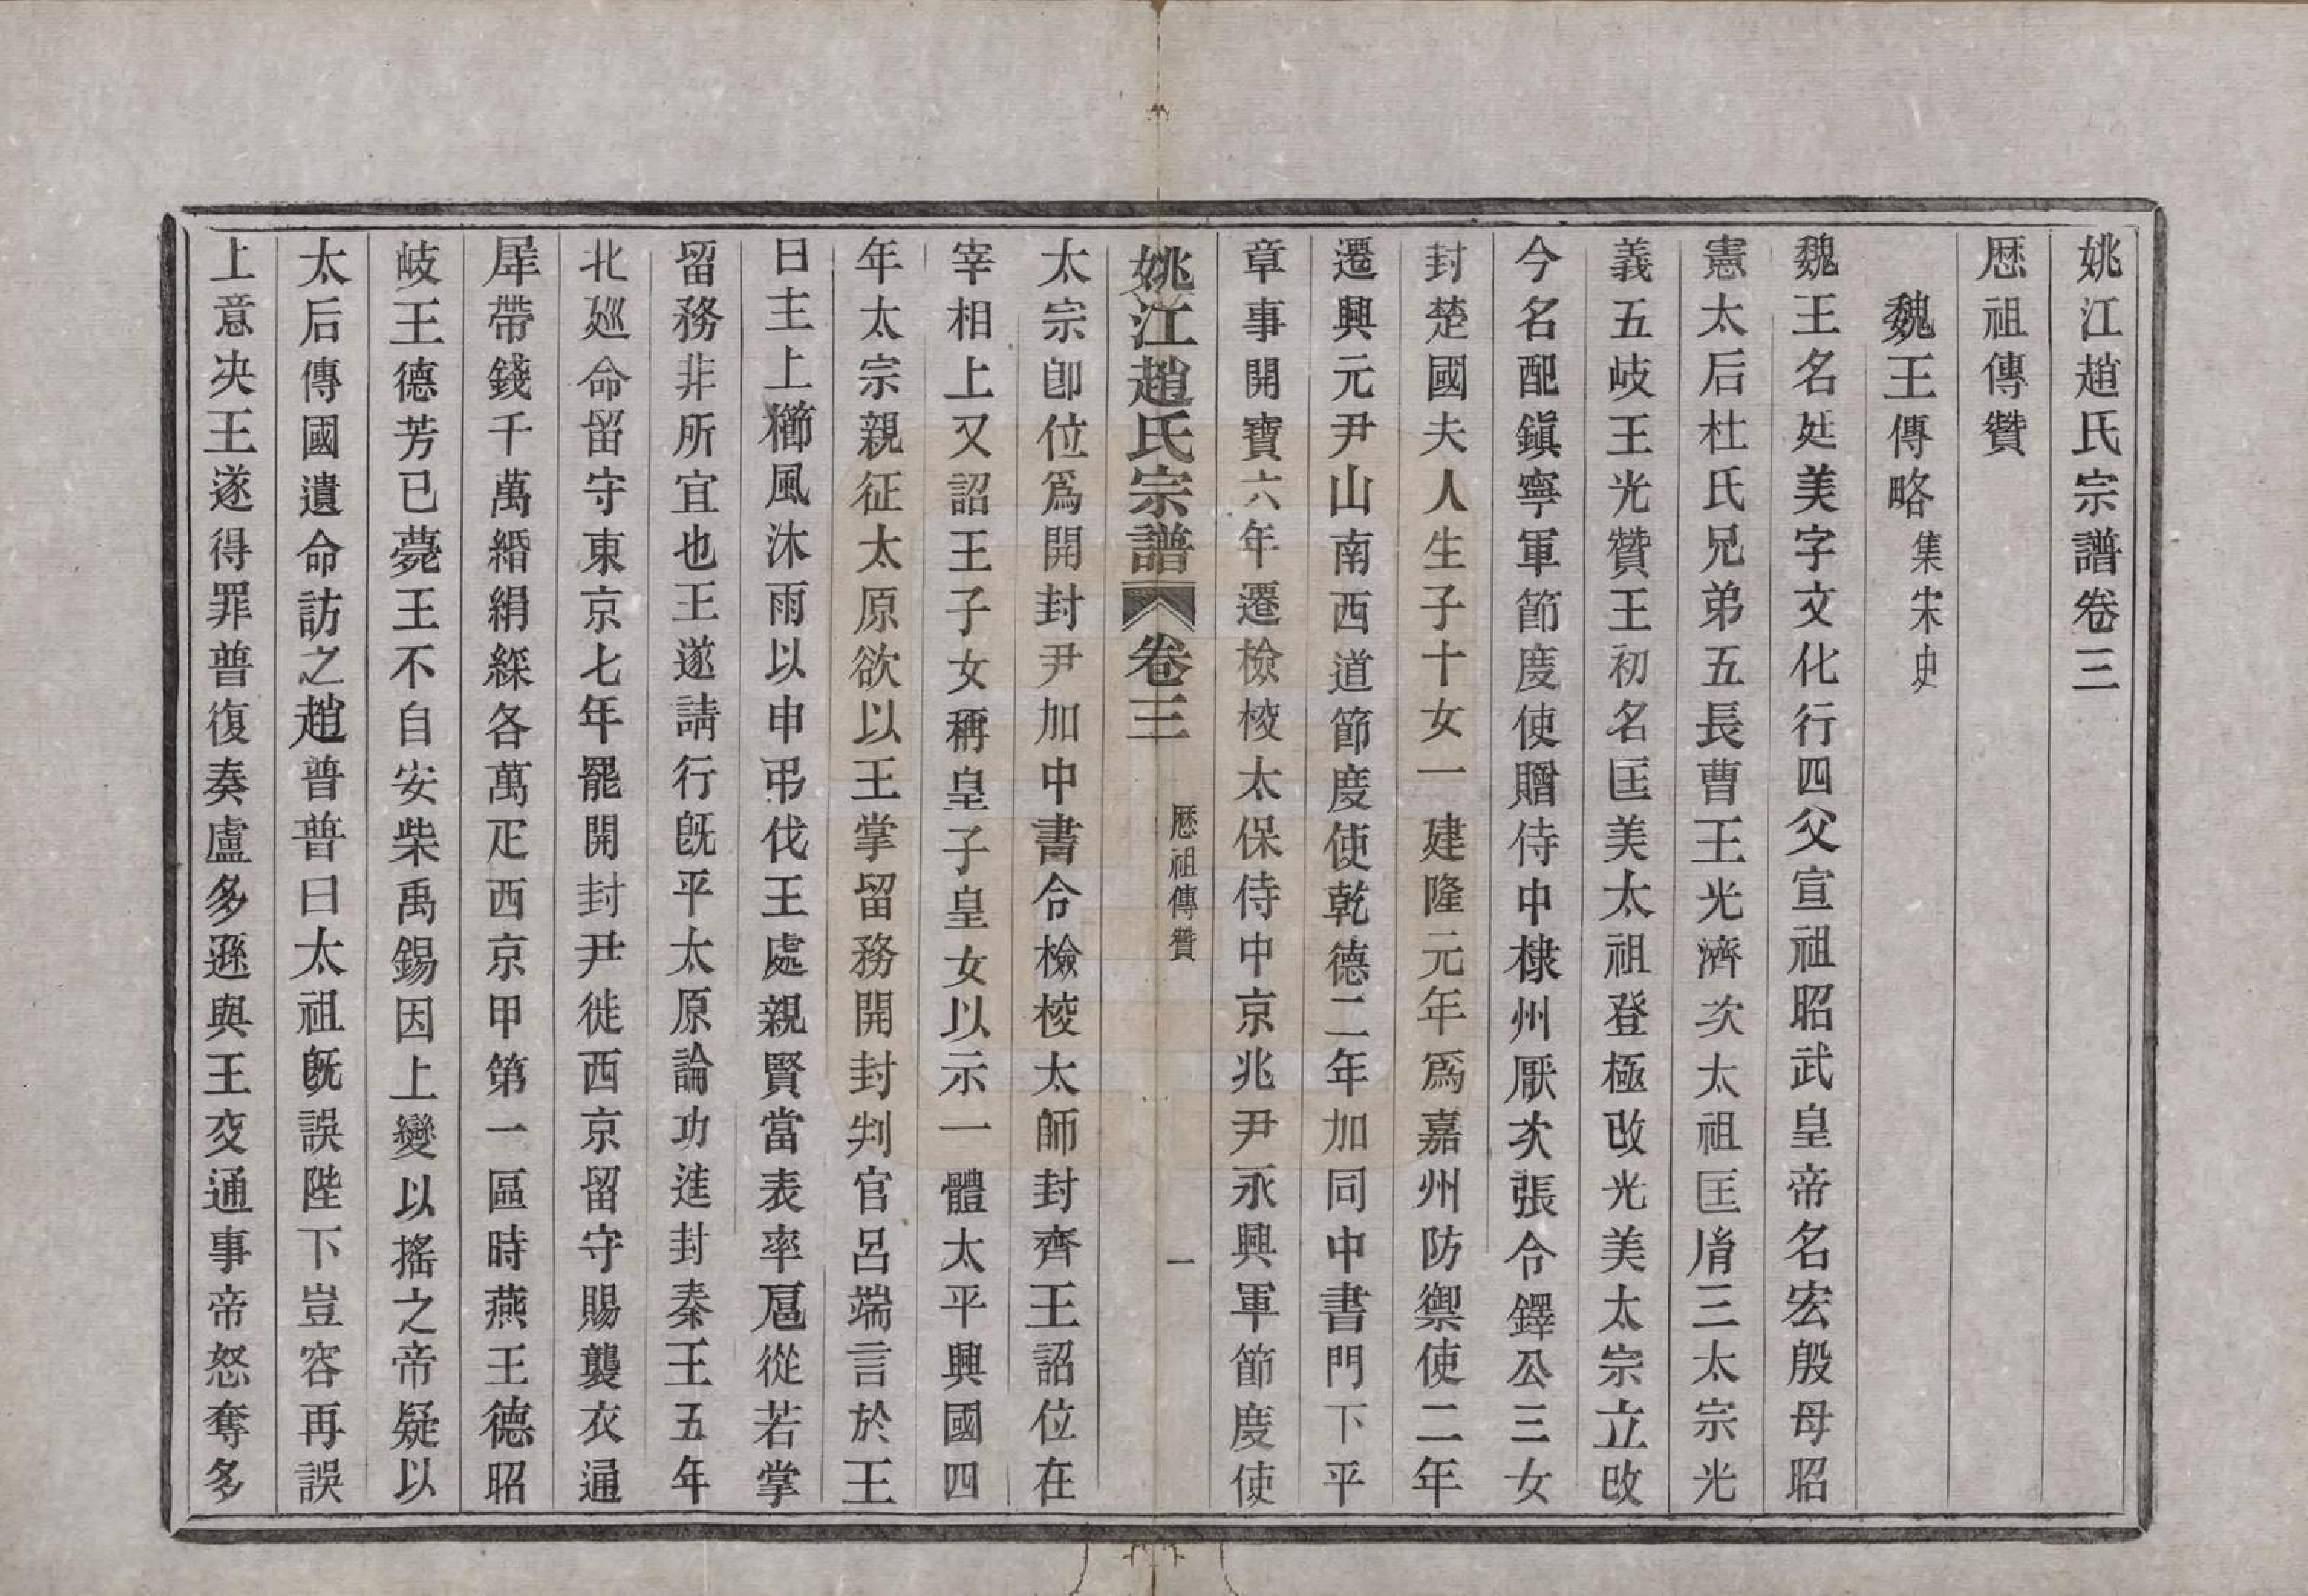 姚江趙氏宗譜卷三
歷祖傳贊
魏王傳略 集宋史
魏王名廷美字文化行四父宣祖昭武皇帝名宏殷母昭
憲太后杜氏兄弟五長曹王光濟次太祖匡胤三太宗光
義五岐王光贊王初名匡美太祖登極改光美太宗立改
今名配鎭寧軍節度使贈侍中棣州厭次張令鐸公三女
封楚國夫人生子十女一建隆元年爲嘉州防禦使二年
遷興元尹山南西道節度使乾德二年加同中書門下平
章事開寶六年遷檢校太保侍中京兆尹永興軍節度使
姚江趙氏宗譜 卷三 歷祖傳贊 一
太宗卽位爲開封尹加中書令檢校太師封齊王詔位在
宰相上又詔王子女稱皇子皇女以示一體太平興國四
年太宗親征太原欲以王掌留務開封判官呂端言於王
曰主上櫛風沐雨以申弔伐王處親賢當表率扈從若掌
留務非所宜也王遂請行旣平太原論功進封秦王五年
北廵命留守東京七年罷開封尹徙西京留守賜襲衣通
犀帶錢千萬緡絹綵各萬疋西京甲第一區時燕王德昭
岐王德芳已薨王不自安柴禹錫因上變以搖之帝疑以
太后傳國遺命訪之趙普普曰太祖旣誤陛下豈容再誤
上意决王遂得罪普復奏盧多遜與王交通事帝怒奪多